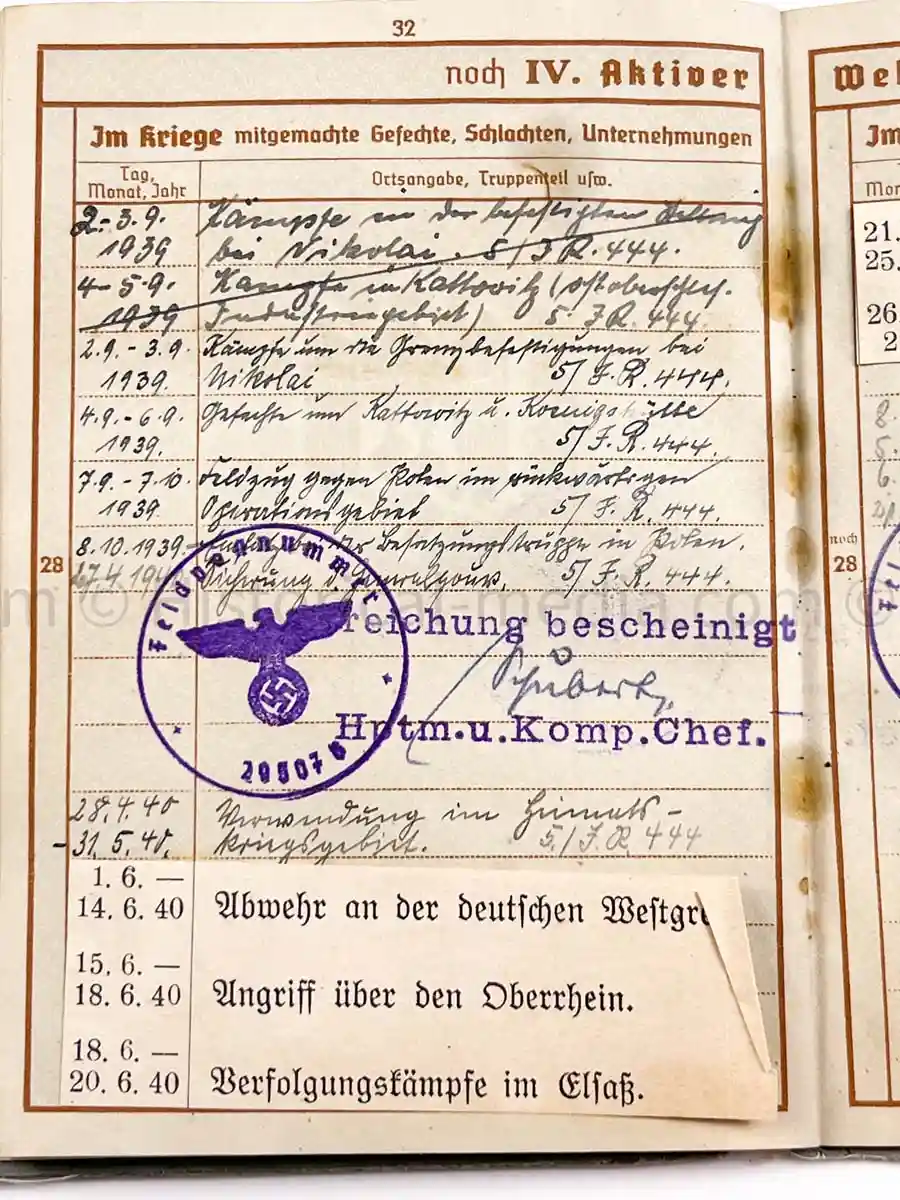 32
noch IV. Aktiver
Im Kriege mitgemachte Gefechte, Schlachten, Unternehmungen
Tag, Monat, Jahr
Ortsangabe, Truppenteil usw.
2.-3.9. Kämpfe in der befestigten
1939 bei Nikolai. 5/J.R.444.
4-5.9. Kämpfe in Kattovitz (ostoberschles.
1939 Industriegebiet) 5. J.R. 444.
2.9. - 3.9. Kämpfe um die Grenzbefestigungen bei
1939. Nikolai 5/ J.R. 444.
4.9. - 6.9. Gefechte um Kattowitz u. Königshütte
1939. 5/ J.R. 444.
7.9. - 7.10. Feldzug gegen Polen im rückwärtigen
1939. Operationsgebiet 5/ J.R. 444.
8.10.1939- der Besatzungstruppe in Polen.
27.4.194 Sicherung d. Generalgouv. 5/ J.R. 444.
28
Feldpostnummer
29507
reichung bescheinigt
Schubert
Hptm.u.Komp.Chef.
28.4.40 Verwendung im Heimats-
-31.5.40. kriegsgebiet. 5./J.R 444
1. 6. —
14. 6. 40 Abwehr an der deutschen Westgre
15. 6. —
18. 6. 40 Angriff über den Oberrhein.
18. 6. —
20. 6. 40 Verfolgungskämpfe im Elsaß.
Wel
Im
Mon
21.
25.
26.
2
8.
5.
6.
noch
28
m © Historical-media.com ©